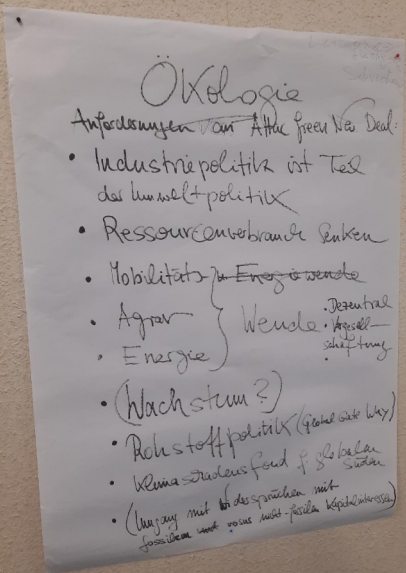 Ökologie
Anforderungen an Attac Green New Deal:
• Industriepolitik ist Teil
der Umweltpolitik
• Ressourcenverbrauch senken
• Mobilitäts- Energiewende
• Agrar } Wende • Dezentral
• Energie • Vergesell-
schaftung
• (Wachstum?)
• Rohstoffpolitik (Global Gate Way)
• Klimaschadensfond f. globalen
Süden
• (Umgang mit Widersprüchen mit
fossilem und nicht-fossilen Kapitalinteressen)